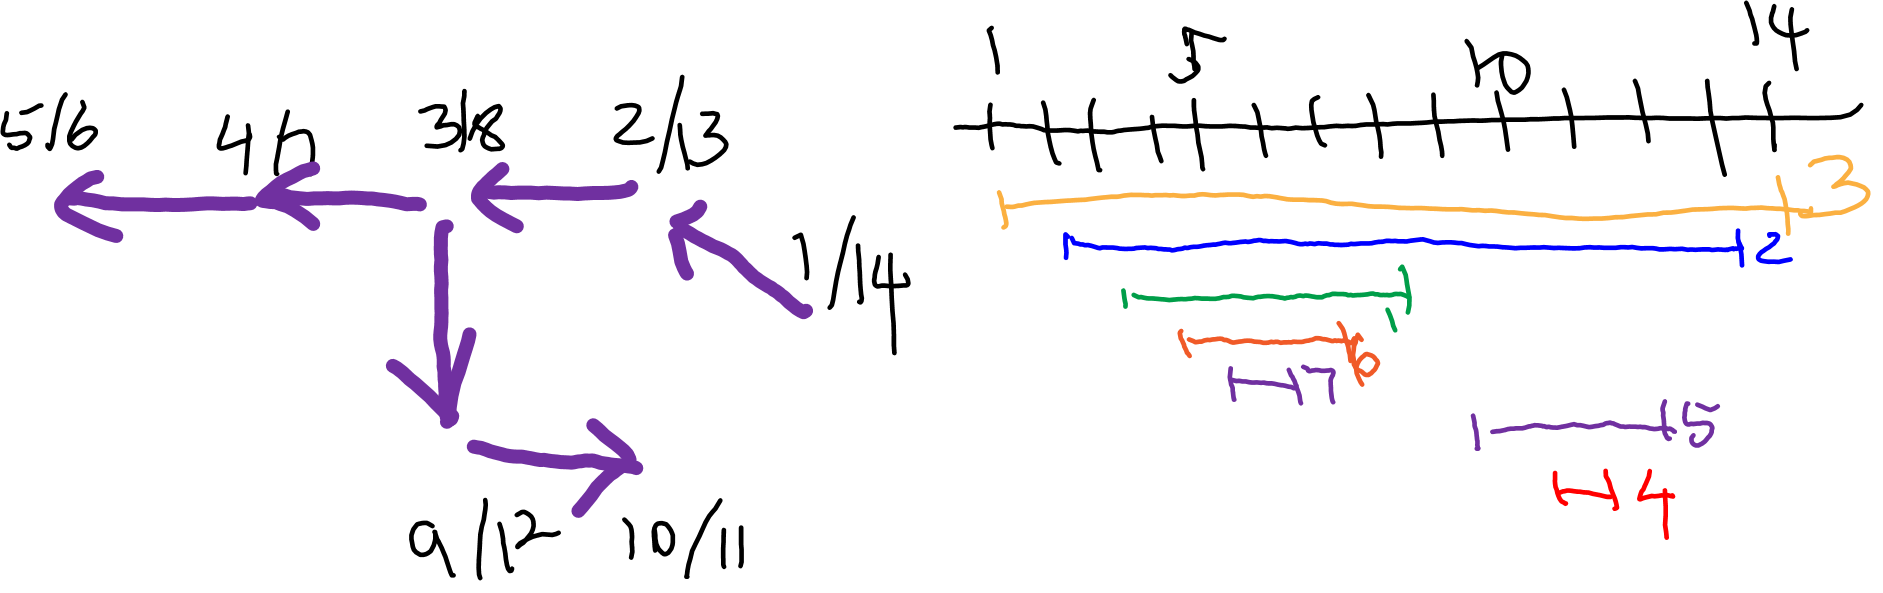 5/6
4/7
3/8
2/13
1/14
9/12
10/11
1
5
10
14
3
2
1
6
7
5
4